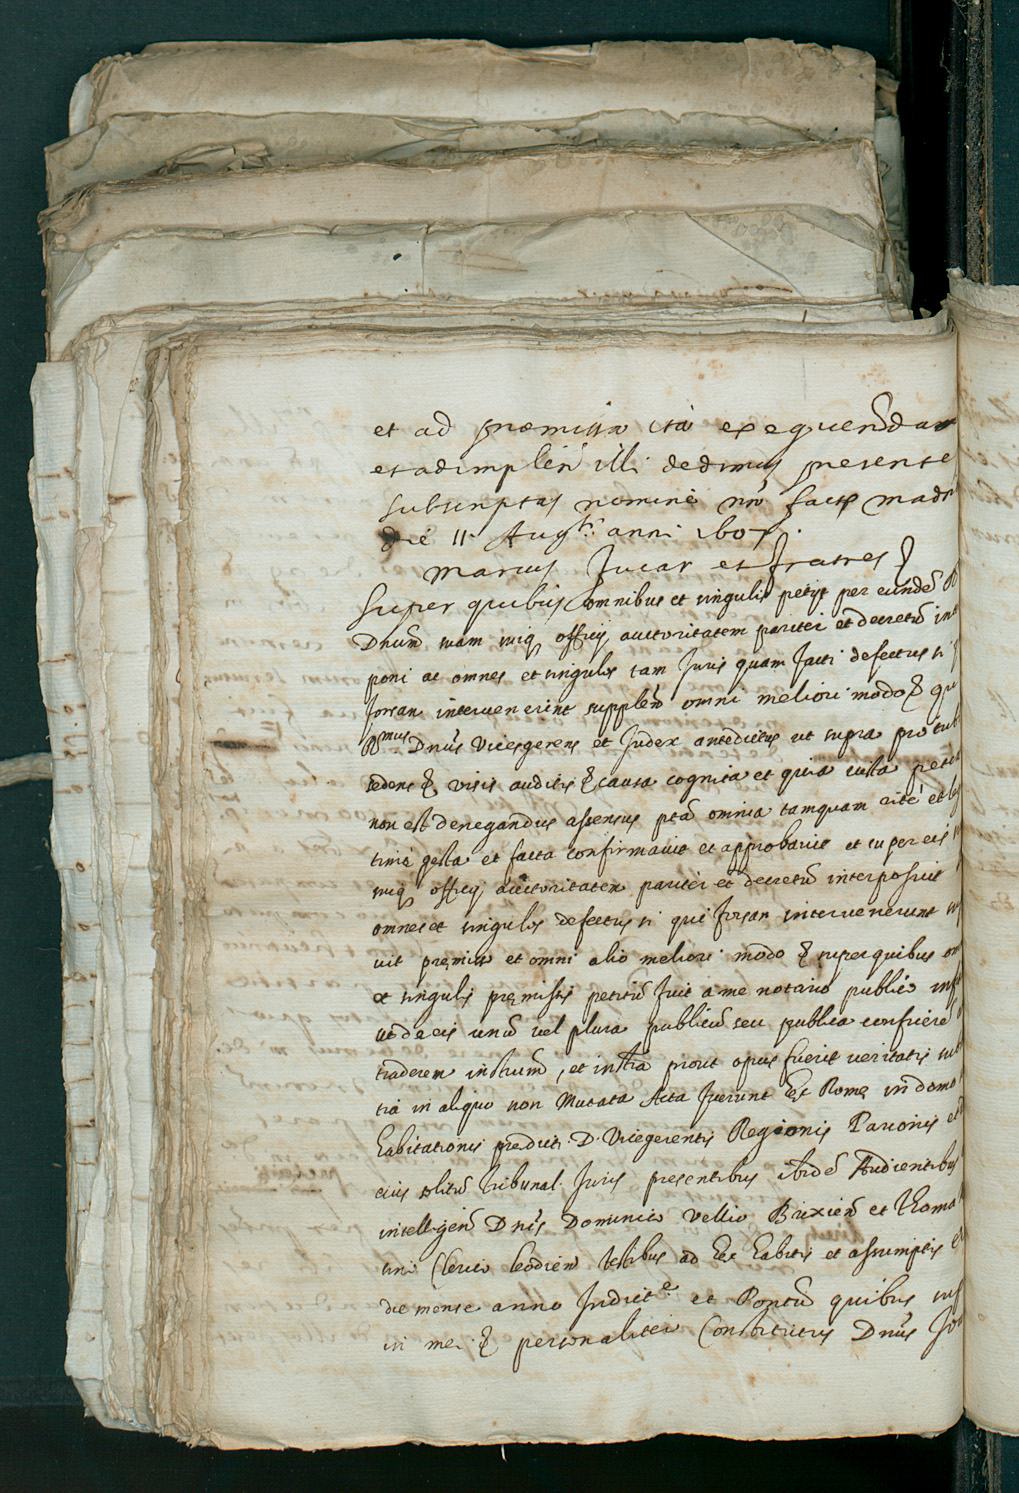 et ad præmissa ita exequendam
et adimplen illi dedimus presente
subscriptas nomine nro facte madr
die 11 Augti anni 160
Marcus fucar et fratres
super quibus omnibus et singulis petijt per eundē R
Dnum suam suiq officij auctoritatem pariter et decretū int
poni ac omnes et singulos tam Juris quam facti defectus si
forsan intervenerint supplen omni meliori modo & qui
Rmus Dnus Vicesgerens et Judex antedictus ut supra pro trib
sedens & visis auditis & causa cognita et quia iusta peten
non est denegandus assensus pta omnia tamquam rite et le
time gesta et facta confirmavit et approbavit et super eis
suiq officij auctoritatem pariter et decretū interposuit
omnes et singulos defectus si qui forsan intervenerunt sup
vit premissis et omni alio meliori modo & super quibus om
et singulis premissis petitū fuit a me notario publico inf
ut de eis unū vel plura publicū seu publica conficere
traderem instrum, et instra prout opus fuerit veritatis sub
tia in aliquo non Mutata Acta fuerunt hec Rome in domo
habitationis predicti D. Vicegerentis Regionis Parionis et
eius solitū tribunal Juris presentibus ibidē Audientibus
intelligen Dnis Dominico Vellio Brixien et Thoma
Clerico leodien testibus ad hec habitis et assumptis
die mense anno Indicte et Pontū quibus sup
in mei & personaliter Constitutus Dnus Jo